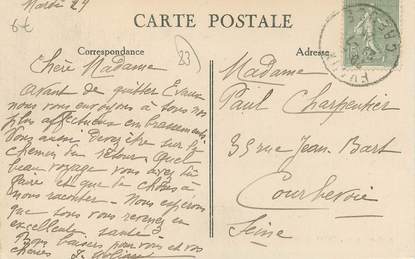 Mardi 24
6€
CARTE POSTALE
Correspondance
23
Adresse
Chère Madame
Avant de quitter Evaux
nous vous envoyons à tous nos
plus affectueux embrassements
Vous devez être sur le
chemin du retour. Quel
beau voyage vous avez dû
faire et que de choses à
nous raconter - Nous espérons
que tous vous revenez en
excellente santé
Bons baisers pour vous et vos
chères
Madame
Paul Charpentier
35 rue Jean Bart
Courbevoie
Seine